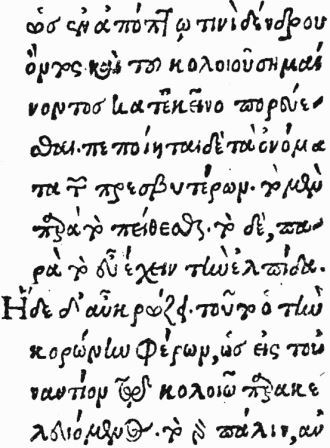 ὡς ἐν ἀπόπτῳ τινὶ δένδρου
ὄντος καὶ τοῦ κολοιοῦ σημαί
νοντος κατ' ἐκεῖνο πορεύε-
σθαι. πεποίηται δὲ τὰ ὀνόμα
τα τῶν πρεσβυτέρων. τὸ μὲν
παρὰ τὸ πείθεσθαι. τὸ δὲ, πα-
ρὰ τὸ εὖ ἔχειν τὴν ἐλπίδα.
Ἥδε δ' αὖ κρώζει. τοῦτο ὁ τὴν
κορώνην φέρων, ὡς εἰς τοὐ
ναντίον τοῦ κολοιοῦ παρακε
λευόμενος. τὸ δὲ πάλιν, ἀν